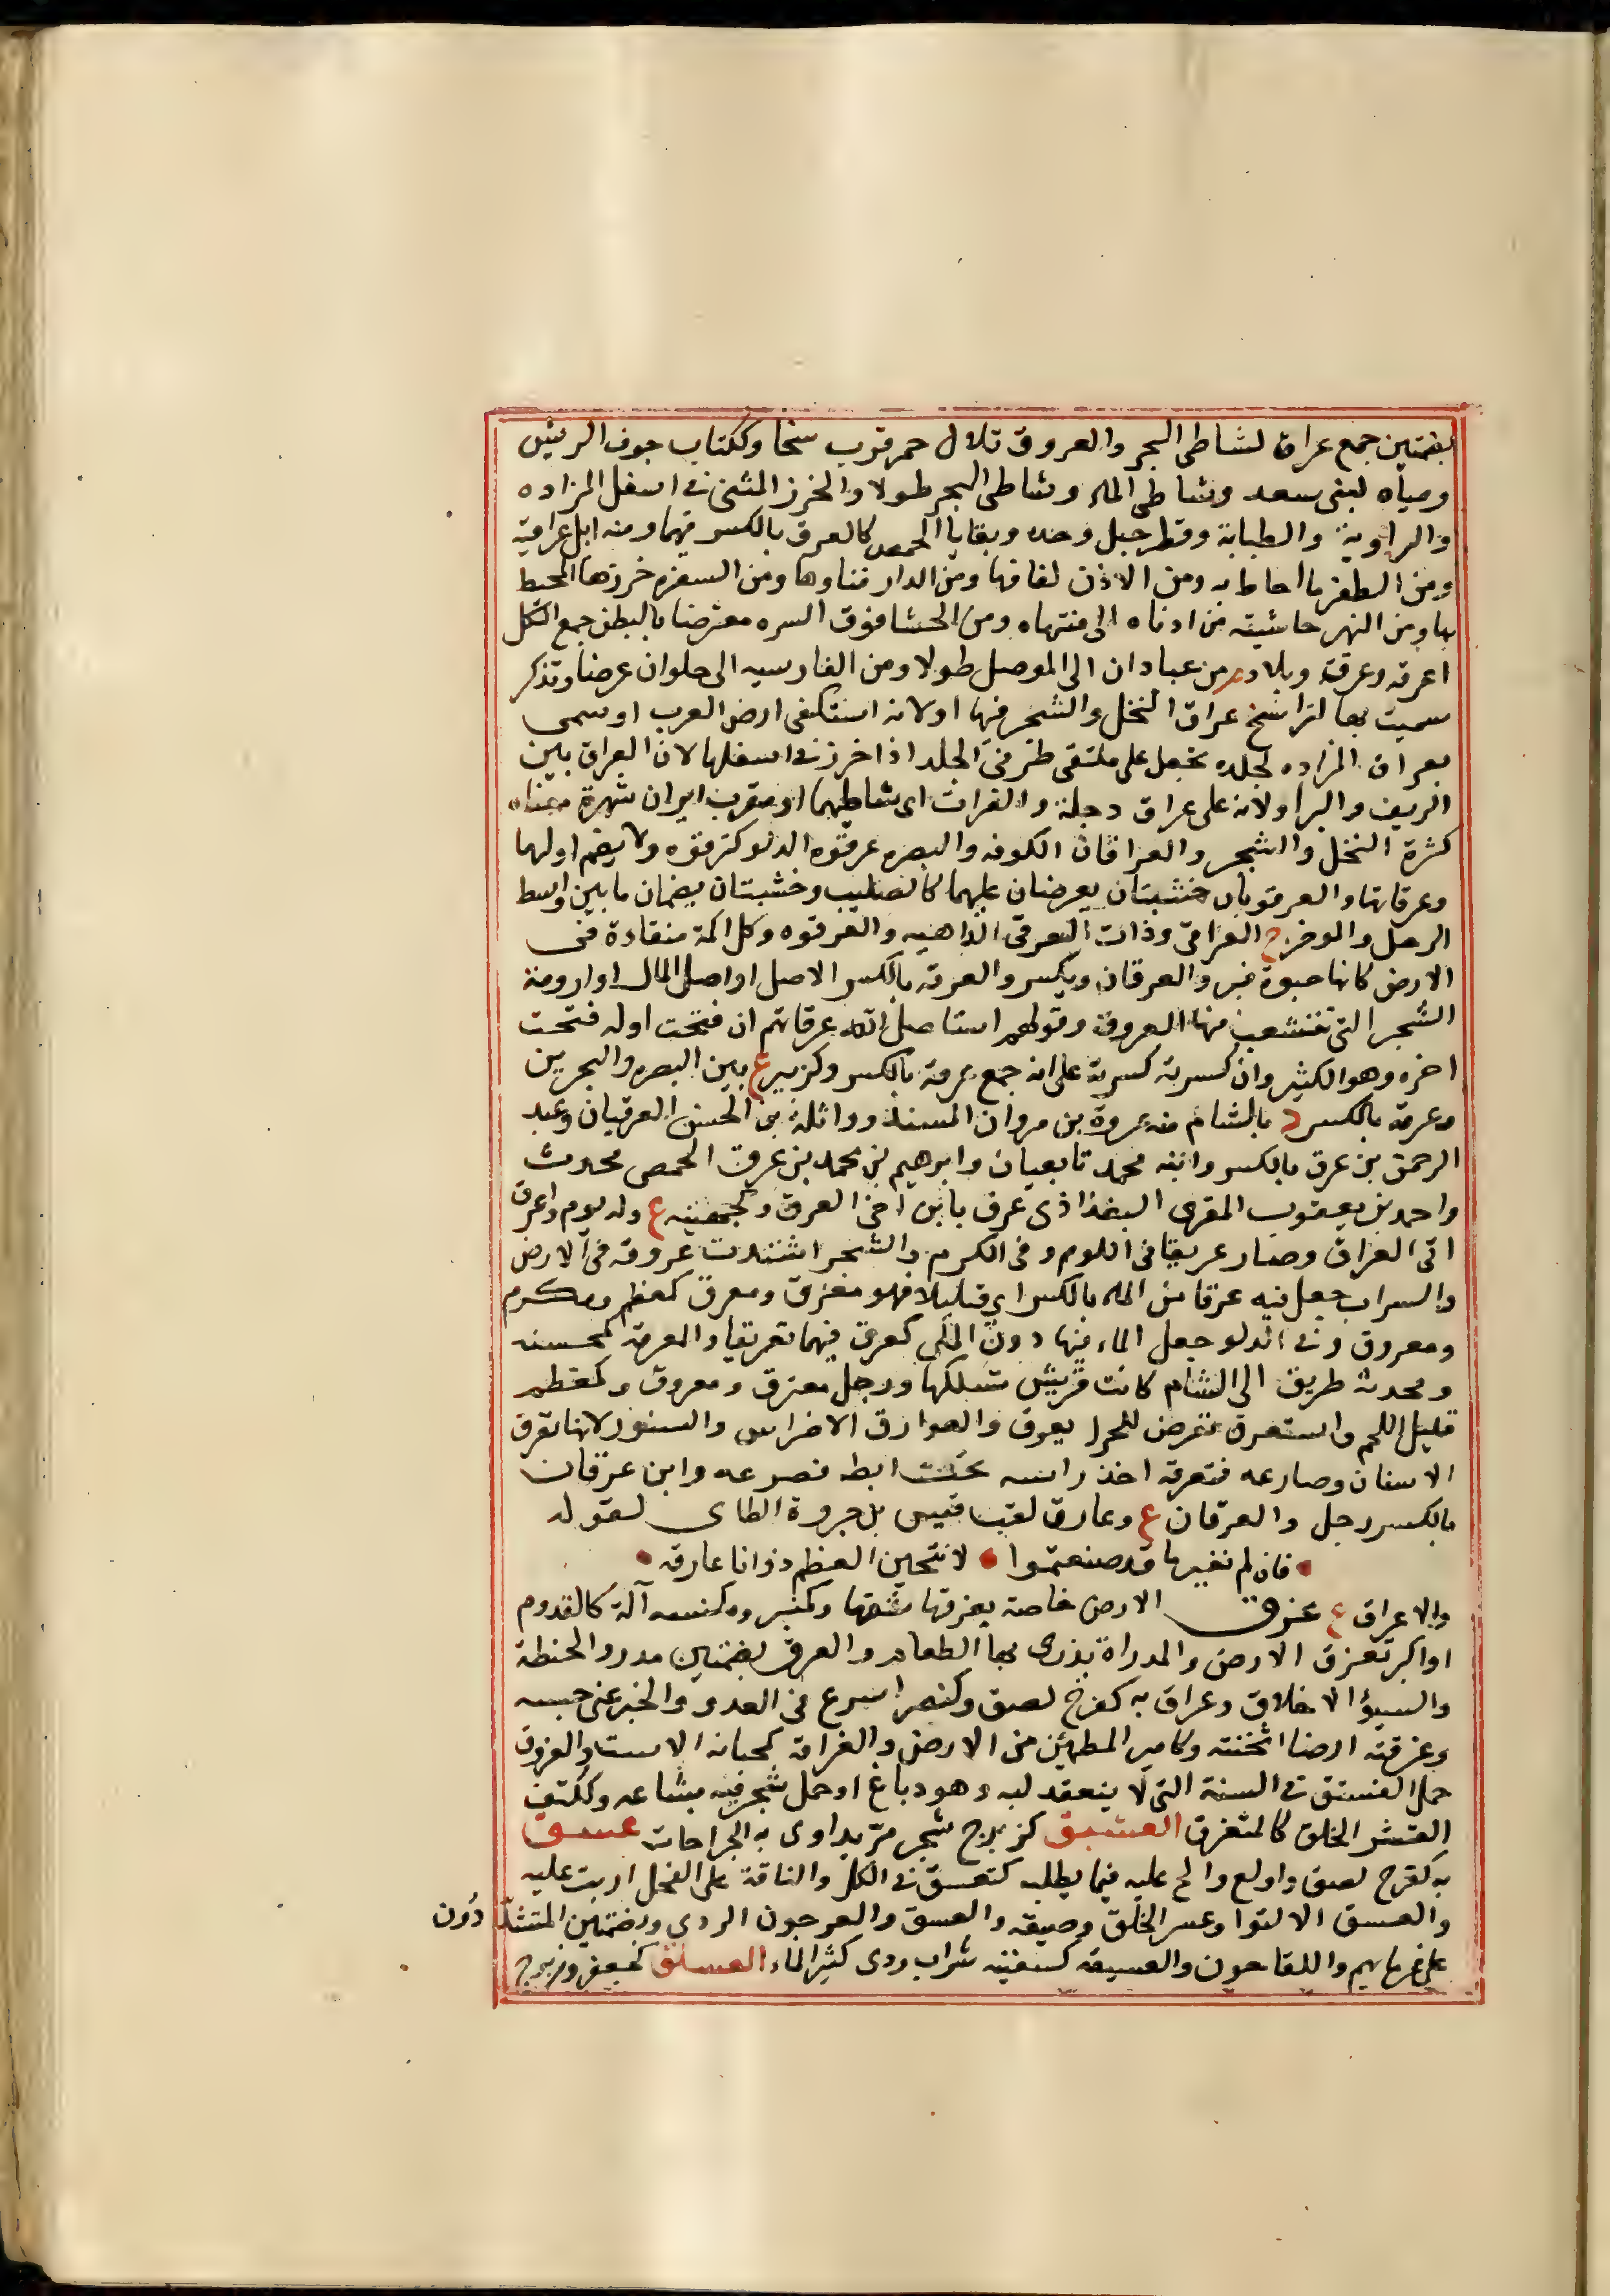 بضمتين جمع عراق لشاطى البحر والعروق تلال حمر قرب سخا وككتاب جوف الريش
ومياه لبنى سعد وشاطى الماء وشاطى البحر طولا والخرز المثنى فى اسفل المزاده
والراوية والطبابة وقطر جبل وحده وبقايا الحمض كالعرق بالكسر فيهما ومنه ابل عراقية
ومن الظفر ما احاط به ومن الاذن لفافها ومن الدار فناوها ومن السفره خرزها المحيط
بها ومن النهر حاشيته من ادناه الى منتهاه ومن الحشا فوق السره معترضا بالبطن جمع الكل
اعرقه وعرقة وبلاد م من عبادان الى الموصل طولا ومن القادسيه الى حلوان عرضا وتذكر
سميت بها لتراسخ عراق النخل والشجر فيها او لانه استكفى ارض العرب او سمى
بعراق المزاده لجلده تجعل على ملتقى طرفى الجلد اذا خرز فى اسفلها لان العراق بين
الريف والبر او لانه على عراق دجلة والفرات اى شاطيهما او معرب ايران شهرة معناه
كثرة النخل والشجر والعراقان الكوفه والبصره عرقوه الدلو كترقوه ولا يضم اولها
وعرقاتها والعرقوتان خشبتان يعرضان عليهما كالصليب وخشبتان يضمان ما بين واسط
الرحل والموخره ج العراقى وذات العرقى الداهيه والعرقوه وكل اكمة منقادة فى
الارض كانها حبوة قبر والعرقاة ويكسر والعرقه بالكسر الاصل او اصل المال او ارومة
الشجر التى تتشعب منها العروق وقولهم استاصل الله عرقاتهم ان فتحت اوله فتحت
اخره وهو الكثير وان كسرته كسرته على انه جمع عرقة بالكسر وكزبير ع بين البصره والبحرين
وعرقه بالكسر د بالشام منه عروة بن مروان المسند وواثلة بن الحسن العرقيان وعبد
الرحمن بن عرق بالكسر وابنه محمد تابعيان وابرهيم بن محمد بن عرق الحمصى محدث
واحمد بن يعقوب المقرى البغداذى عرف بابن اخى العرق وكجهينه ع وله يوم واعرق
اتى العراق وصار عريقا فى اللوم وفى الكرم والشجر اشتدت عروقه فى الارض
والسراب جعل فيه عرقا من الماء بالكسر اى قليلا فهو معرق ومعرق كمعظم ومكرم
ومعروق وفى الدلو جعل الماء فيها دون الملى كعرق فيهما تعريقا والمعرقه كمحسنه
ومحدثة طريق الى الشام كانت قريش تسلكها ورجل معترق ومعروق وكمعظم
قليل اللحم واستعرق تعرض للحر ل يعرق والعوارق الاضراس والسنور لانها تعرق
الاسنان وصارعه فتعرقه اخذ راسه تحت ابطه فصرعه وابن عرقان
بالكسر رجل والعرقان ع وعارق لقب قيس بن جروة الطاى لقوله
• فان لم نغير ما قد صنعتموا • لانتحين العظم ذو انا عارقه •
والاعراق ع عزق الارض خاصة يعزقها شقها وكمنبر ومكنسه آلة كالقدوم
او اكبر تعزق الارض والمدراة يذرى بها الطعام والعزق بضمتين مدرو الحنطة
والسيؤا الاخلاق وعزق به كفرح لصق وكنصر اسرع فى العدو والخبر عنى حبسه
وعزقته ارضا اثخنته وكامير المطمئن من الارض والعزاقه كجبانه الاست والعزوق
حمل الفستق فى السنة التى لا ينعقد لبه وهو دباغ او حمل شجر فيه بشاعه وككتف
العسر الخلق كالمتعزق العسبق كزبرج شجر مر يداوى به الجراحات عسق
به كفرح لصق واولع والح عليه فيما يطلبه كتعسق فى الكل والناقة على الفحل اربت عليه
والعسق الالتوا وعسر الخلق وضيقه والعسق والعرجون الردى وبضمتين المتشددون
على غرمايهم واللقاحون والعسيقه كسفينه شراب ردى كثير الماء العسلق كجعفر وزبرج